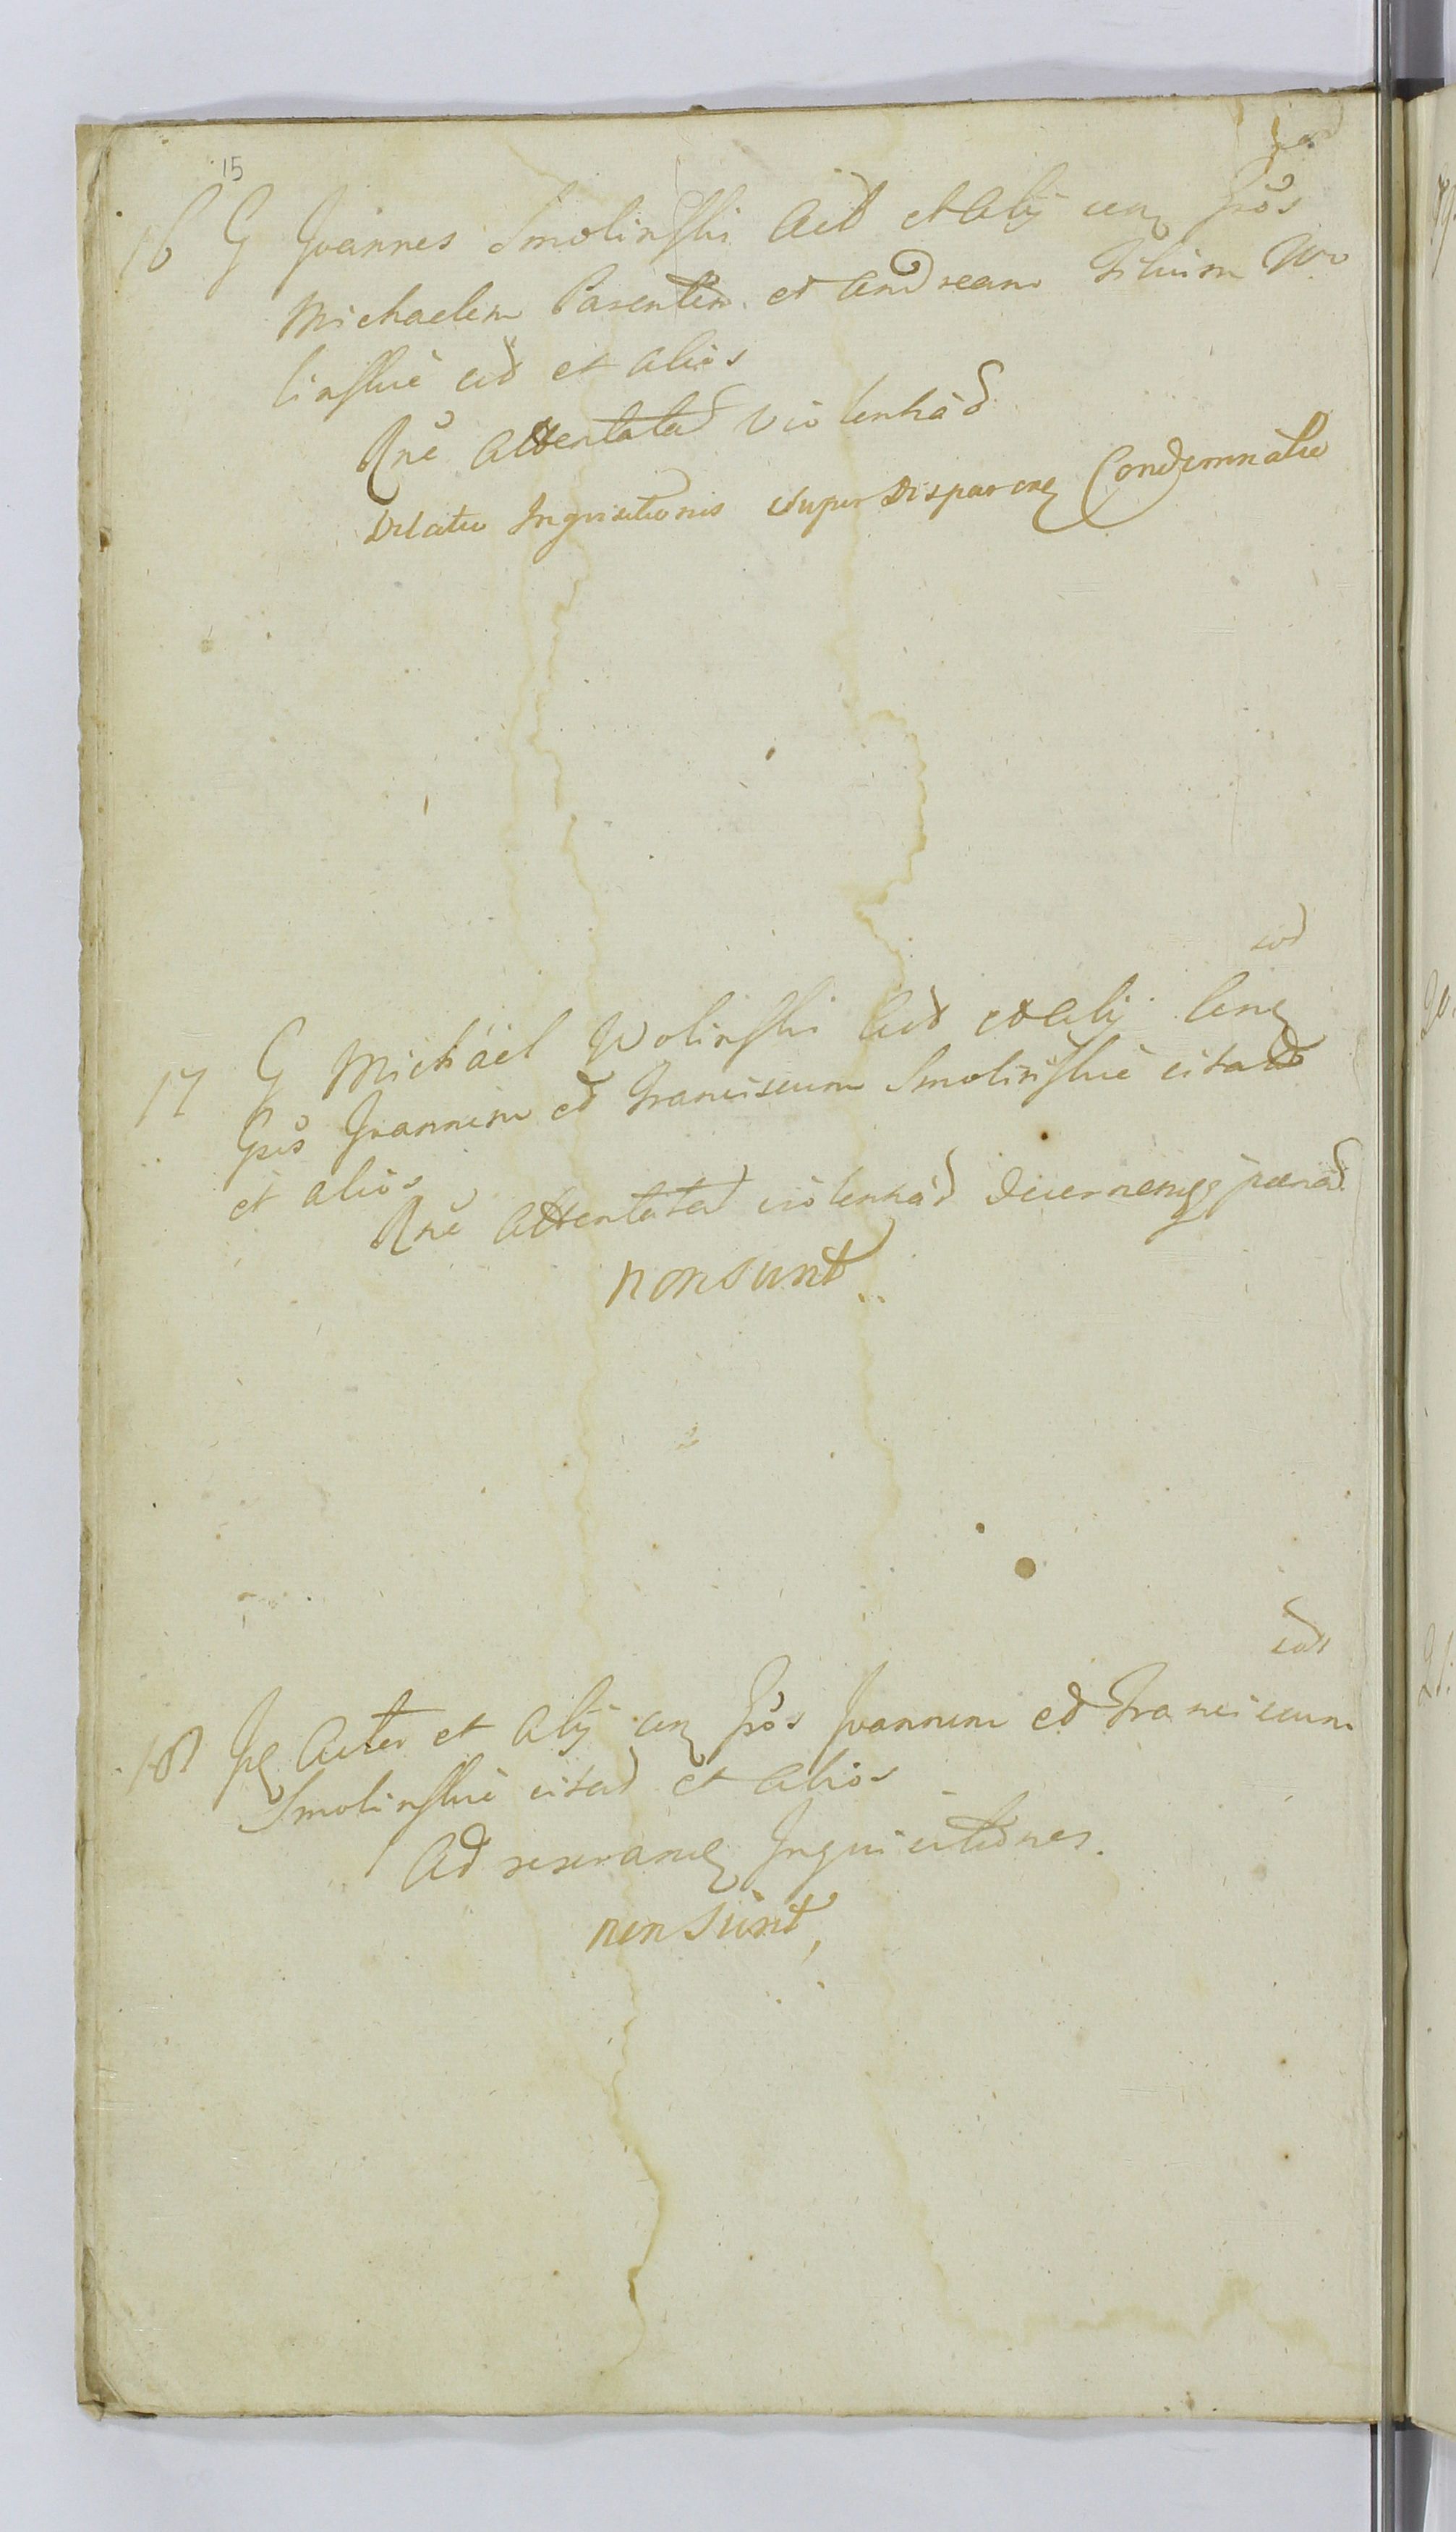 15
eod
16 G Joannes Smolinski Act et alij cnq Gsos
Michaelem Parentem et Andream Filium Wo
linskie cit et alios
Rne attentatad violentiad
Dilatio Inquisitionis super disparone Condemnatio
eod
17 G Michäel Wolinski Act et alij cnq
Gsos Joannem et Franciscum Smolinskie citatos
et alios
Rne attentatad violentiad decernenqg paenad
non sunt
eod
18 Jq Actor et alij cnq Gsos Joannem et Franciscum
Smolinskie citad et alios
Ad reserandq Inquisitiones.
non sunt,